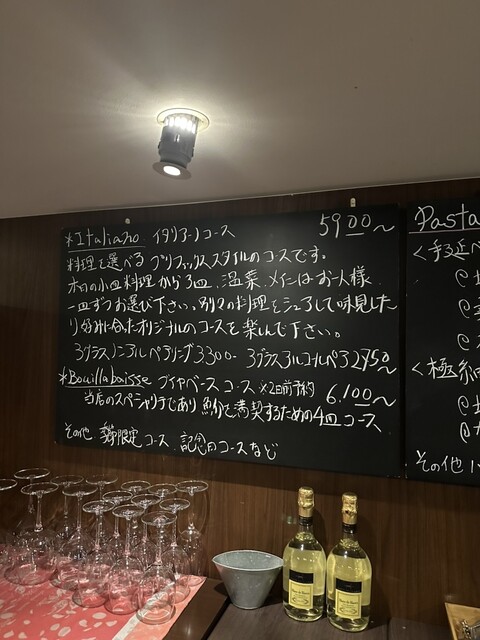 *Italiano イタリアーノコース 5900〜
料理を選べるプリフィックススタイルのコースです。
本日の小皿料理から3皿、温菜、メインはお一人様
一皿ずつお選び下さい。別々の料理をシェアして味見した
り好みに合わせたオリジナルのコースを楽しんで下さい。
3グラスノンアルペアリング3300- 3グラスアルコールペア2750〜
*Bouillabaisse ブイヤベースコース ※2日前予約 6.100〜
当店のスペシャリテであり魚介を満喫するための4皿コース
その他 季節限定コース 記念日コースなど
Pasta
<手延べ
<極細
その他